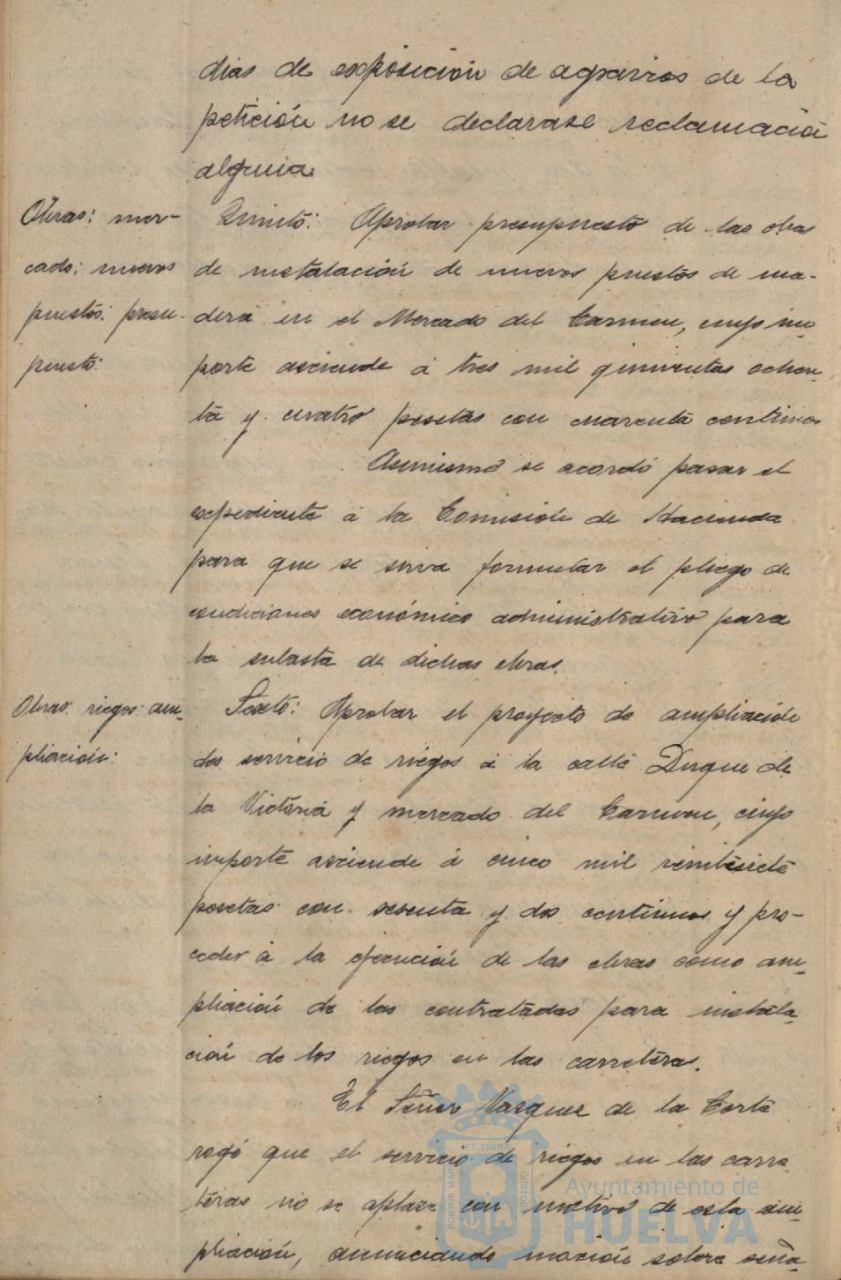 dias de exposición de agravios de la
petición no se declarase reclamación
alguna.
Obras: mer-
cado: nuevos
puestos: presu-
puesto:
Quinto: Aprobar presupuesto de las obras
de instalación de nuevos puestos de ma-
dera en el Mercado del Carmen, cuyo im-
porte asciende á tres mil quinientas ochen-
ta y cuatro pesetas con cuarenta centimos
Asimismo se acordó pasar el
expediente á la Comisión de Hacienda
para que se sirva formular el pliego de
condiciones económico administrativo para
la subasta de dichas obras.
Obras: riegos: am-
pliación:
Sexto: Aprobar el proyecto de ampliación
del servicio de riegos á la calle Duque de
la Victoria y mercado del Carmen, cuyo
importe asciende á cinco mil veintisiete
pesetas con sesenta y dos centimos y pro-
ceder á la ejecución de las obras como am-
pliación de las contratadas para instala-
ción de los riegos en las carretera.
El Señor Vazquez de la Corte
rogó que el servicio de riegos en las carre
teras no se aplaze con motivo de esta am-
pliación, anunciando moción sobre seña-
Ayuntamiento de
HUELVA